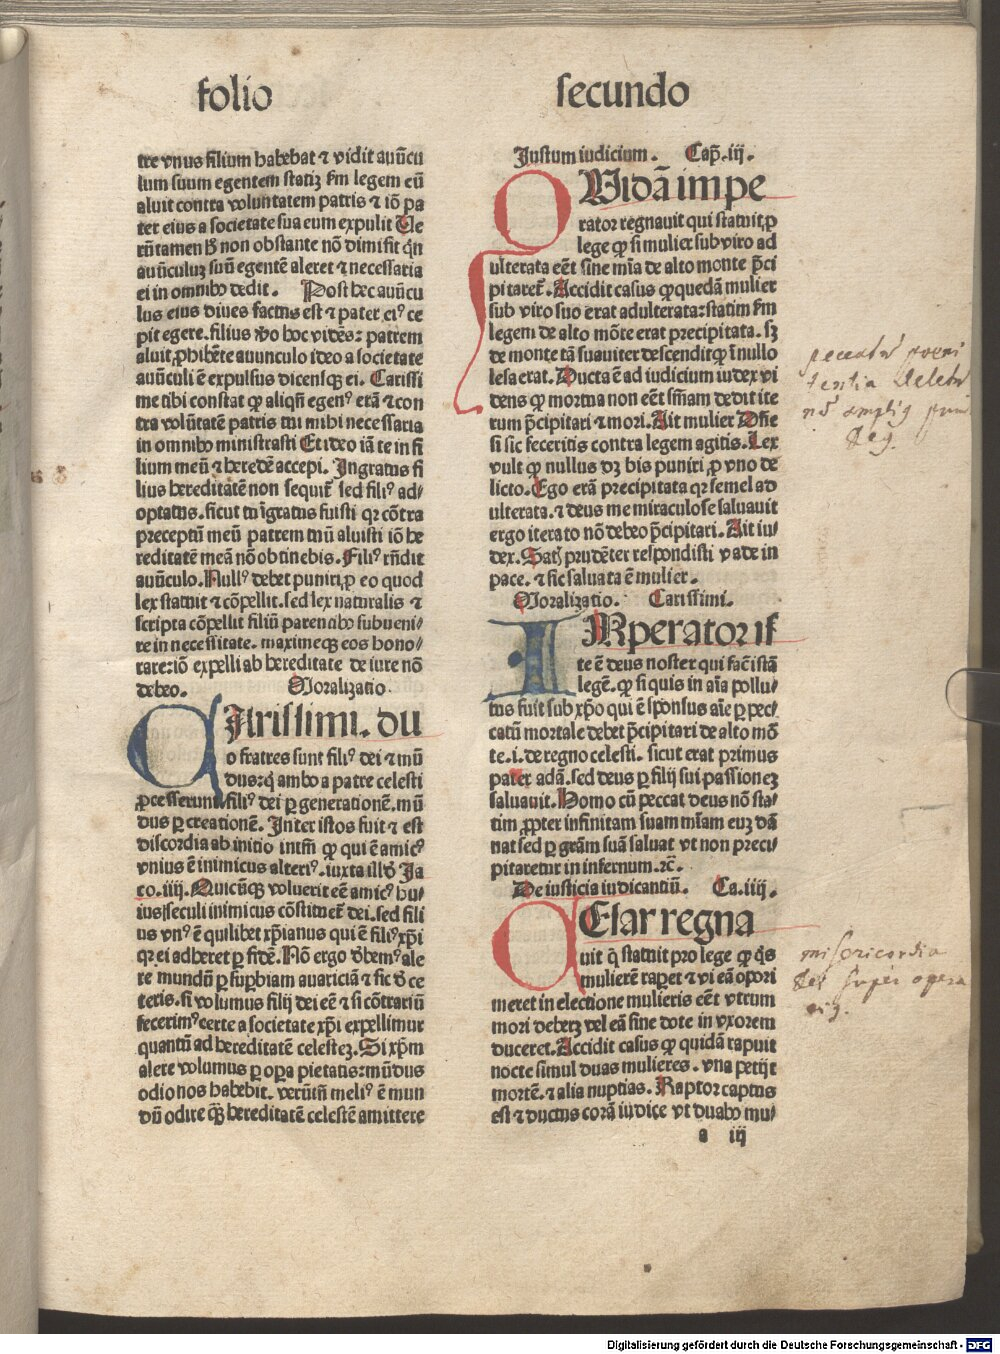 folio
secundo
tre vnus filium habebat ⁊ vidit auūcu
lum suum egentem statiʒ fm legem eū
aluit contra voluntatem patris ⁊ iō pa
ter eius a societate sua eum expulit Ue
rūtamen hͦ non obstante nō dimisit qͥn
auūculuʒ suū egentē aleret ⁊ necessaria
ei in omnibꝰ dedit. Post hec auūcu
lus eius diues factus est ⁊ pater eiꝰ ce
pit egere. filius ꝟo hoc vidēs: patrem
aluit, ꝓhibēte auunculo ideo a societate
auūculi ē expulsus dicensqꝫ ei. Carissi
me tibi constat ꝙ aliqn̄ egenꝰ erā ⁊ con
tra volūtatē patris tui mihi necessaria
in omnibꝰ ministrasti Et ideo iā te in fi
lium meū ⁊ heredē accepi. Ingratus fi
lius hereditatē non sequit᷑ sed filiꝰ ad⸗
optatus. sicut tu īgratus fuisti qꝛ cōtra
preceptū meū patrem tuū aluisti iō he
reditatē meā nō obtinebis. Filiꝰ rn̄dit
auūculo. Nullꝰ debet puniri, ꝓ eo quod
lex statuit ⁊ cōpellit. sed lex naturalis ⁊
scripta cōpellit filiū parentibꝰ subueni⸗
re in necessitate. maximeqꝫ eos hono⸗
rare: iō expelli ab hereditate de iure nō
debeo. Moralizatio.
CArissimi. du
o fratres sunt filiꝰ dei ⁊ mū
dus: qͥ ambo a patre celesti
ꝓcesserunt filiꝰ dei ꝑ generationē. mū
dus ꝑ creationē. Inter istos fuit ⁊ est
discordia ab initio intm̄ ꝙ qui ē amicꝰ
vnius ē inimicus alteriꝰ. iuxta illḋ Ja
co. iiij. Quicūqꝫ voluerit eē amicꝰ hu⸗
ius seculi inimicus cōstituet᷑ dei. sed fili
us vnꝰ ē quilibet xp̄ianus qui ē filiꝰ xp̄i
qꝛ ei adheret ꝑ fidē. Nō ergo ḋbemꝰ ale
re mundū ꝑ suꝑbiam auariciā ⁊ sic ḋ ce
teris. si volumus filij dei eē ⁊ si cōtrariū
fecerimꝰ certe a societate xp̄i expellimur
quantū ad hereditatē celesteʒ. Si xp̄m
alere volumus ꝑ oꝑa pietatis: mūdus
odio nos habebit. verūtn̄ meliꝰ ē mun
dū odire qͣꝫ hereditatē celestē amittere
Justum iudicium. Cap̄. iij.
QUidā impe
rator regnauit qui statuit, ꝓ
lege ꝙ si mulier sub viro ad
ulterata eēt sine mīa de alto monte p̄ci
pitaret᷑. Accidit casus ꝙ quedā mulier
sub viro suo erat adulterata: statim fm
legem de alto mōte erat precipitata. sꝫ
de monte tā suauiter descendit ꝙ ī nullo
lesa erat. Ducta ē ad iudicium iudex vi
dens ꝙ mortua non eēt sn̄iam dedit ite
rum p̄cipitari ⁊ mori. Ait mulier Dn̄e
si sic feceritis contra legem agitis. Lex
vult ꝙ nullus dꝫ bis puniri, ꝓ vno de
licto. Ego erā precipitata qꝛ semel ad
ulterata. ⁊ deus me miraculose saluauit
ergo iterato nō debeo p̄cipitari. Ait iu⸗
dex. Satꝭ prudēter respondisti vade in
pace. ⁊ sic saluata ē mulier.
Moralizatio. Carissimi.
IMperator is
te ē deus noster qui facit istā
legē. ꝙ si quis in aīa pollu⸗
tus fuit sub xp̄o qui ē sponsus aīe ꝑ pec
catū mortale debet p̄cipitari de alto mō
te. i. de regno celesti. sicut erat primus
pater adā. sed deus ꝑ filij sui passioneʒ
saluauit. Homo cū peccat deus nō sta⸗
tim ꝓpter infinitam suam mīam euʒ dā
nat sed ꝑ grām suā saluat vt non preci⸗
pitaretur in infernum. ⁊c̄.
De iusticia iudicantiū. Ca. iiij.
CEsar regna
uit qͥ statuit pro lege ꝙ qͥs
mulierē raꝑet ⁊ vi eā opori
meret in electione mulieris eēt vtrum
mori deberʒ vel eā sine dote in vxorem
duceret. Accidit casus ꝙ quidā rapuit
nocte simul duas mulieres. vna petijt
mortē. ⁊ alia nuptias. Raptor captus
est ⁊ ductus corā iudice vt duabꝰ mu⸗
a iij
peccatū poeni
tentia deletū
nō amplius
misericordia
dei super opera
eius.
Digitalisierung gefördert durch die Deutsche Forschungsgemeinschaft - DFG